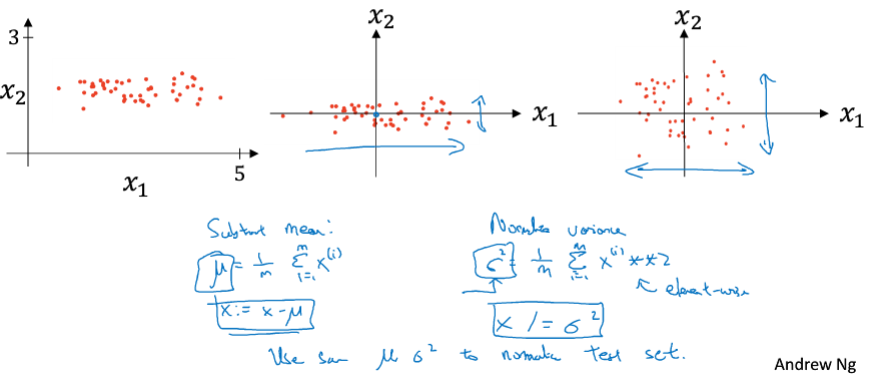 3
x₂
x₁
5
x₂
x₁
x₂
x₁
Subtract mean:
μ = 1/m Σ_{i=1}^{m} x^{(i)}
x := x - μ
Normalize variance
σ² = 1/m Σ_{i=1}^{m} x^{(i)} ** 2
↖ element-wise
x /= σ²
Use same μ σ² to normalize test set.
Andrew Ng